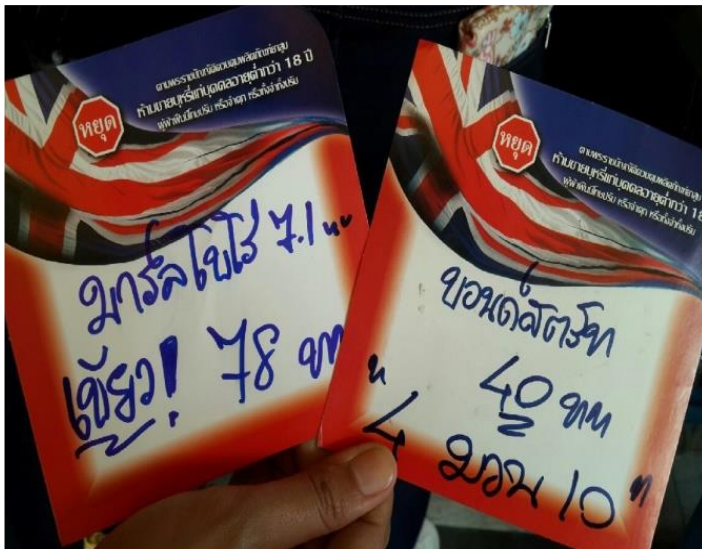 ตามพระราชบัญญัติควบคุมผลิตภัณฑ์ยาสูบ
ห้ามขายบุหรี่แก่บุคคลอายุต่ำกว่า 18 ปี
ผู้ฝ่าฝืนมีโทษปรับ หรือจำคุก หรือทั้งจำทั้งปรับ
หยุด
มาร์ลโบโร่ 7.1
เขียว! 78 บาท
ตามพระราชบัญญัติควบคุมผลิตภัณฑ์ยาสูบ
ห้ามขายบุหรี่แก่บุคคลอายุต่ำกว่า 18
ผู้ฝ่าฝืนมีโทษปรับ หรือจำคุก หรือทั้งจำทั้งปรับ
หยุด
บอนด์สตรีท
40 บาท
" 4 มวน 10 "